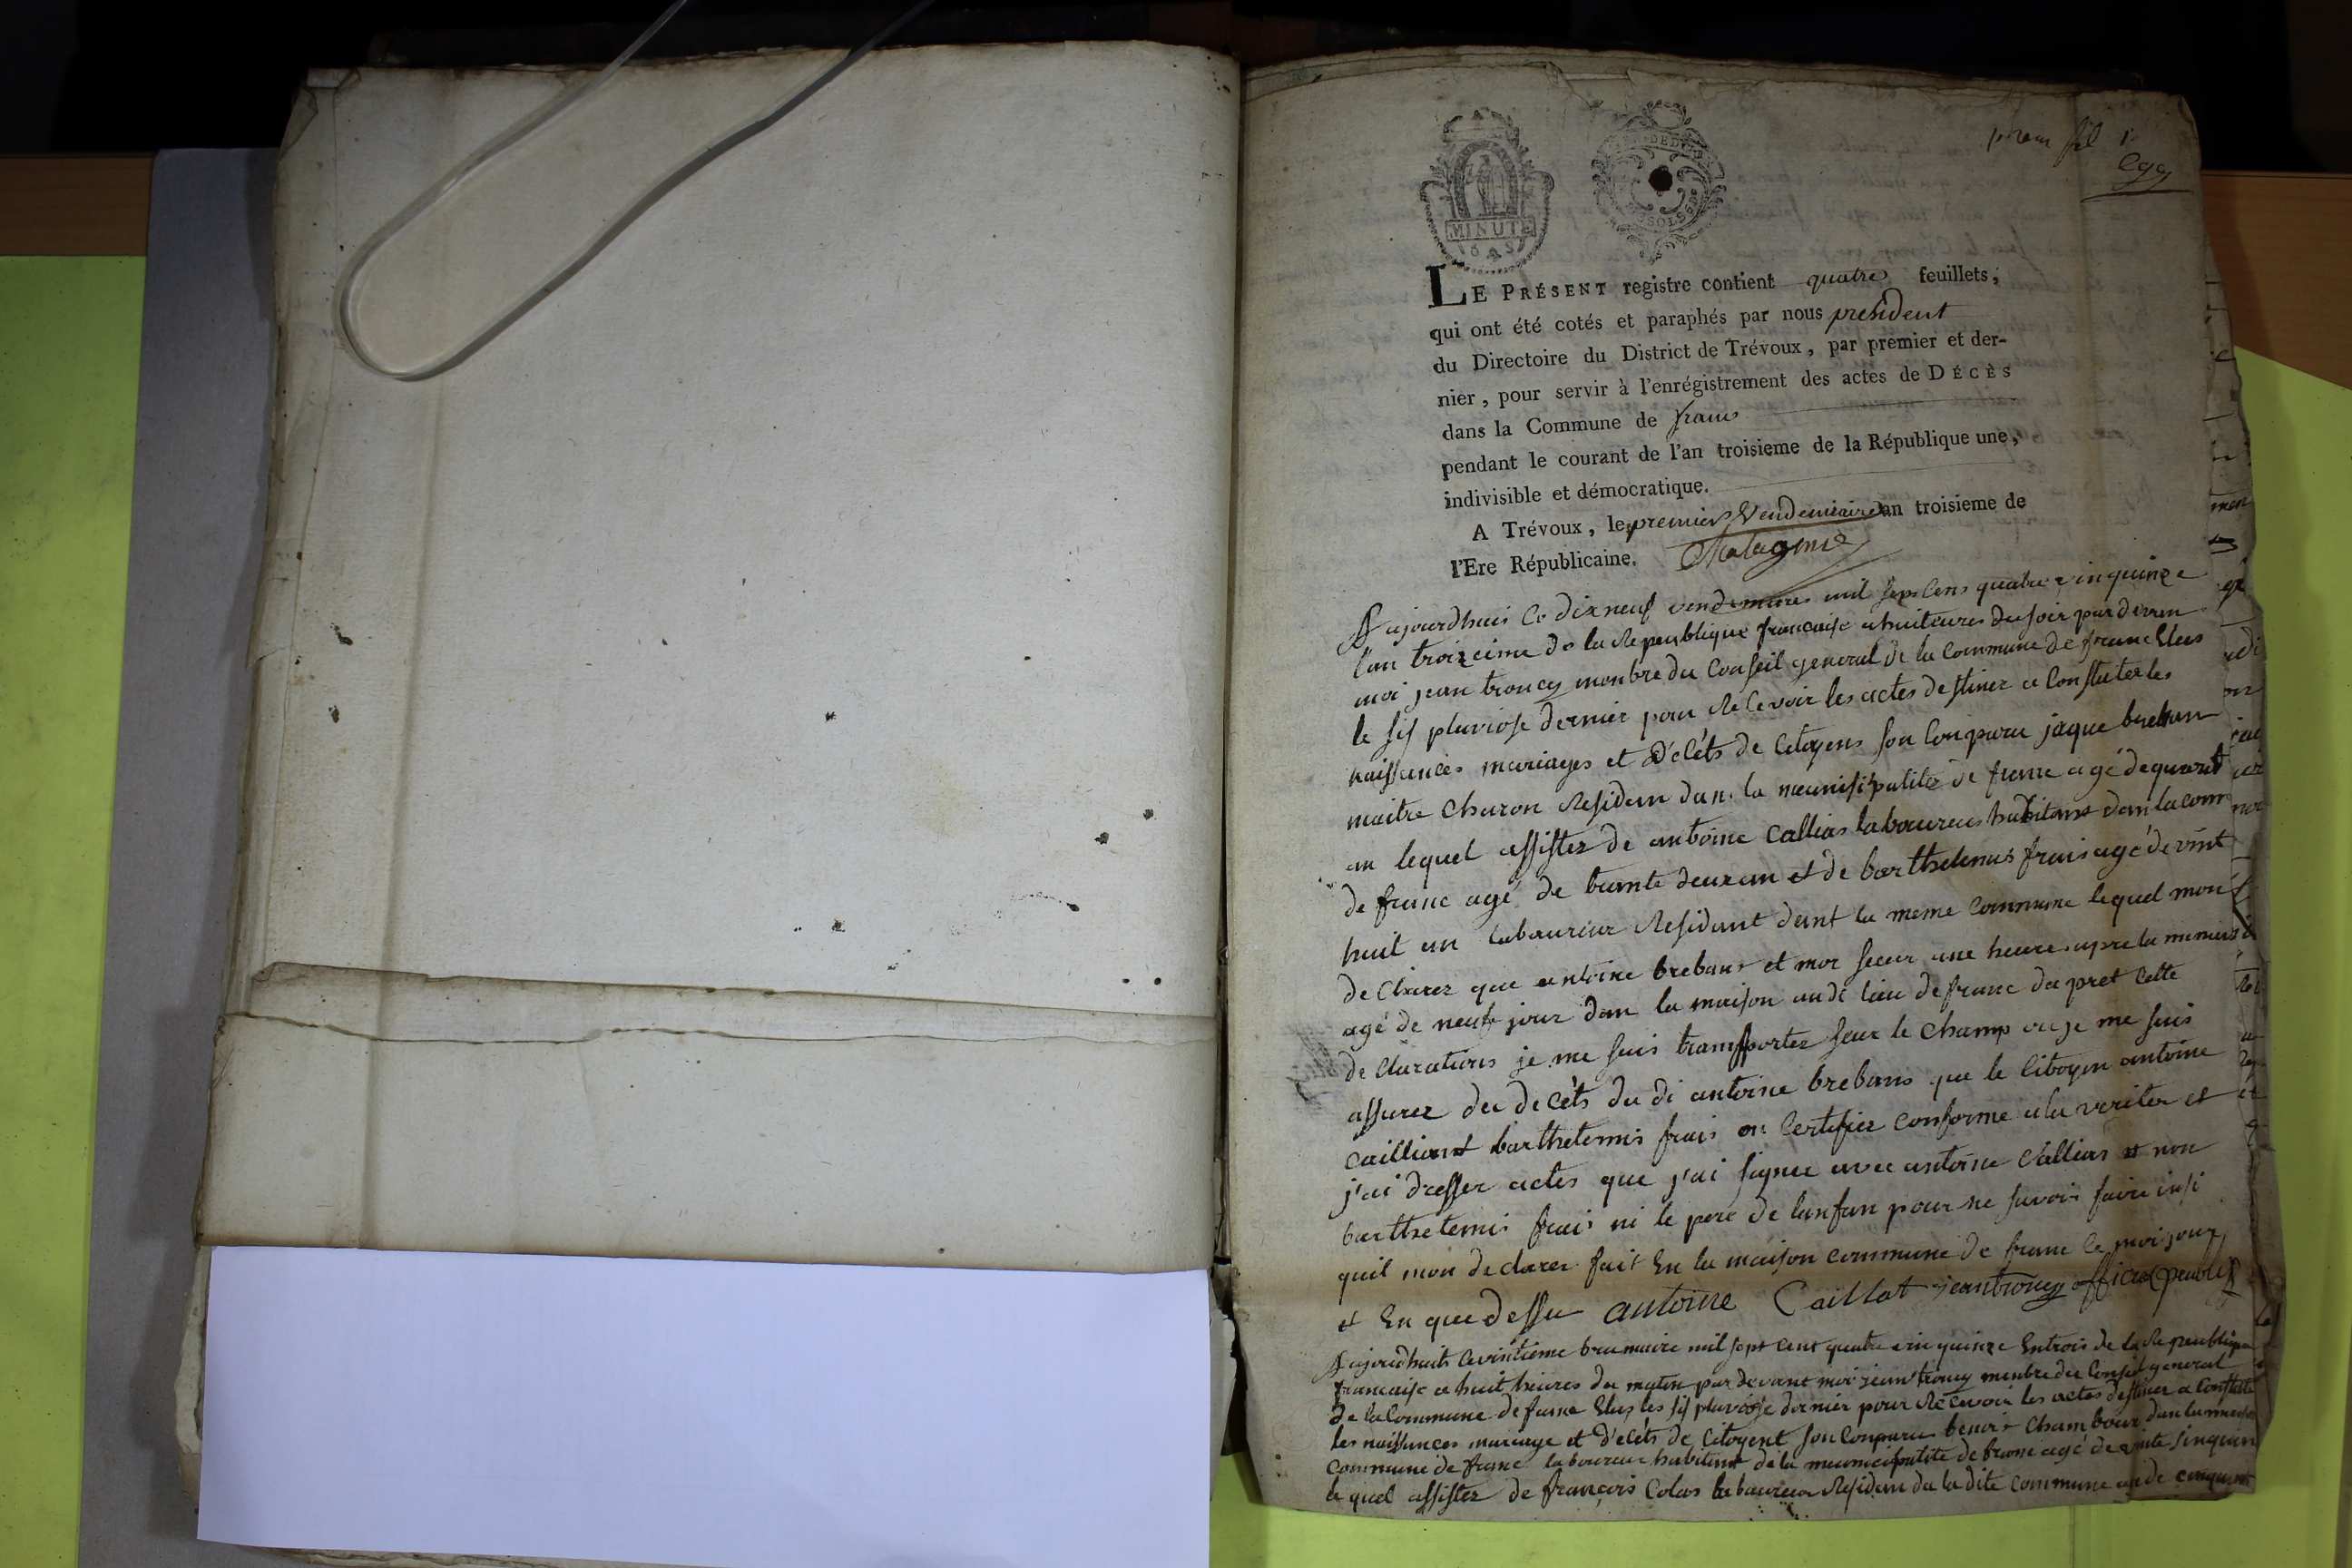 MINUTE
LE PRÉSENT registre contient quatre feuillets,
qui ont été cotés et paraphés par nous president
du Directoire du District de Trévoux, par premier et der-
nier, pour servir à l'enrégistrement des actes de DÉCÈS
dans la Commune de frans
pendant le courant de l'an troisieme de la République une,
indivisible et démocratique.
A Trévoux, le premier Vendemiaire an troisieme de
l'Ere Républicaine.
Aujourdhui Ce dix neuf vendemiere mil sept Cens quatre vin quinze
l'an troizeime de la Republique francaise a huit eures du soir par devan
moi jean troncy monbre du Conseil general de la Commune de franc Elus
le sis pluviose dernier pour Recevoir les actes destiner a Constater les
naissances mariages et déléts de Citoyens son Conparu jaque breban
maitre Charon Residan dan la meunisipalité de franc agé de quarant
an lequel assistez de antoine Callias laboureus habitant dan la com
de franc agé de trante deux an et de barthelemis frais agé de vint
huit an laboureur Residant dant la meme Commune lequel mon
de Clarez que antoine brebans et mor seur une heure apre la
agé de neuf jour dan la maison au di lieu de franc da pret Cette
de Claration je me suis transporter seur le Champ ou je me suis
assurez du decéts du di antoine brebans que le Citoyen antoine
Cailliant barthelemis frais on Certifiez Conforme a la veriter et
j'ai dresser actes que j'ai signee avec antoine Callias et non
barthelemis frais ni le pere de lanfan pour ne savoir faire insi
quil mon declarer fait En la maison commune de franc Ce moi jour
et En que dessu antoine Caillat jean troncy officié peublis
Aujourdhuits Ce vintieme brumaire mil sept Cent quatre vin quinze Entrois de la Republique
francaise a huit heures du matin par devant moi jean troncy menbre du Conseil general
de la Commune de franc Elus les sis pluviose dernier pour Recevoir les actes destiner a Constater
les naissances mariage et d'eléts de Citoyent son Conparu benoit Chambour dan la
Commune de franc laboureur habitant de la meunicipalite de franc agé de vinte sinquan
le quel assistez de françois Colas laboureur Residan da la dite Commune